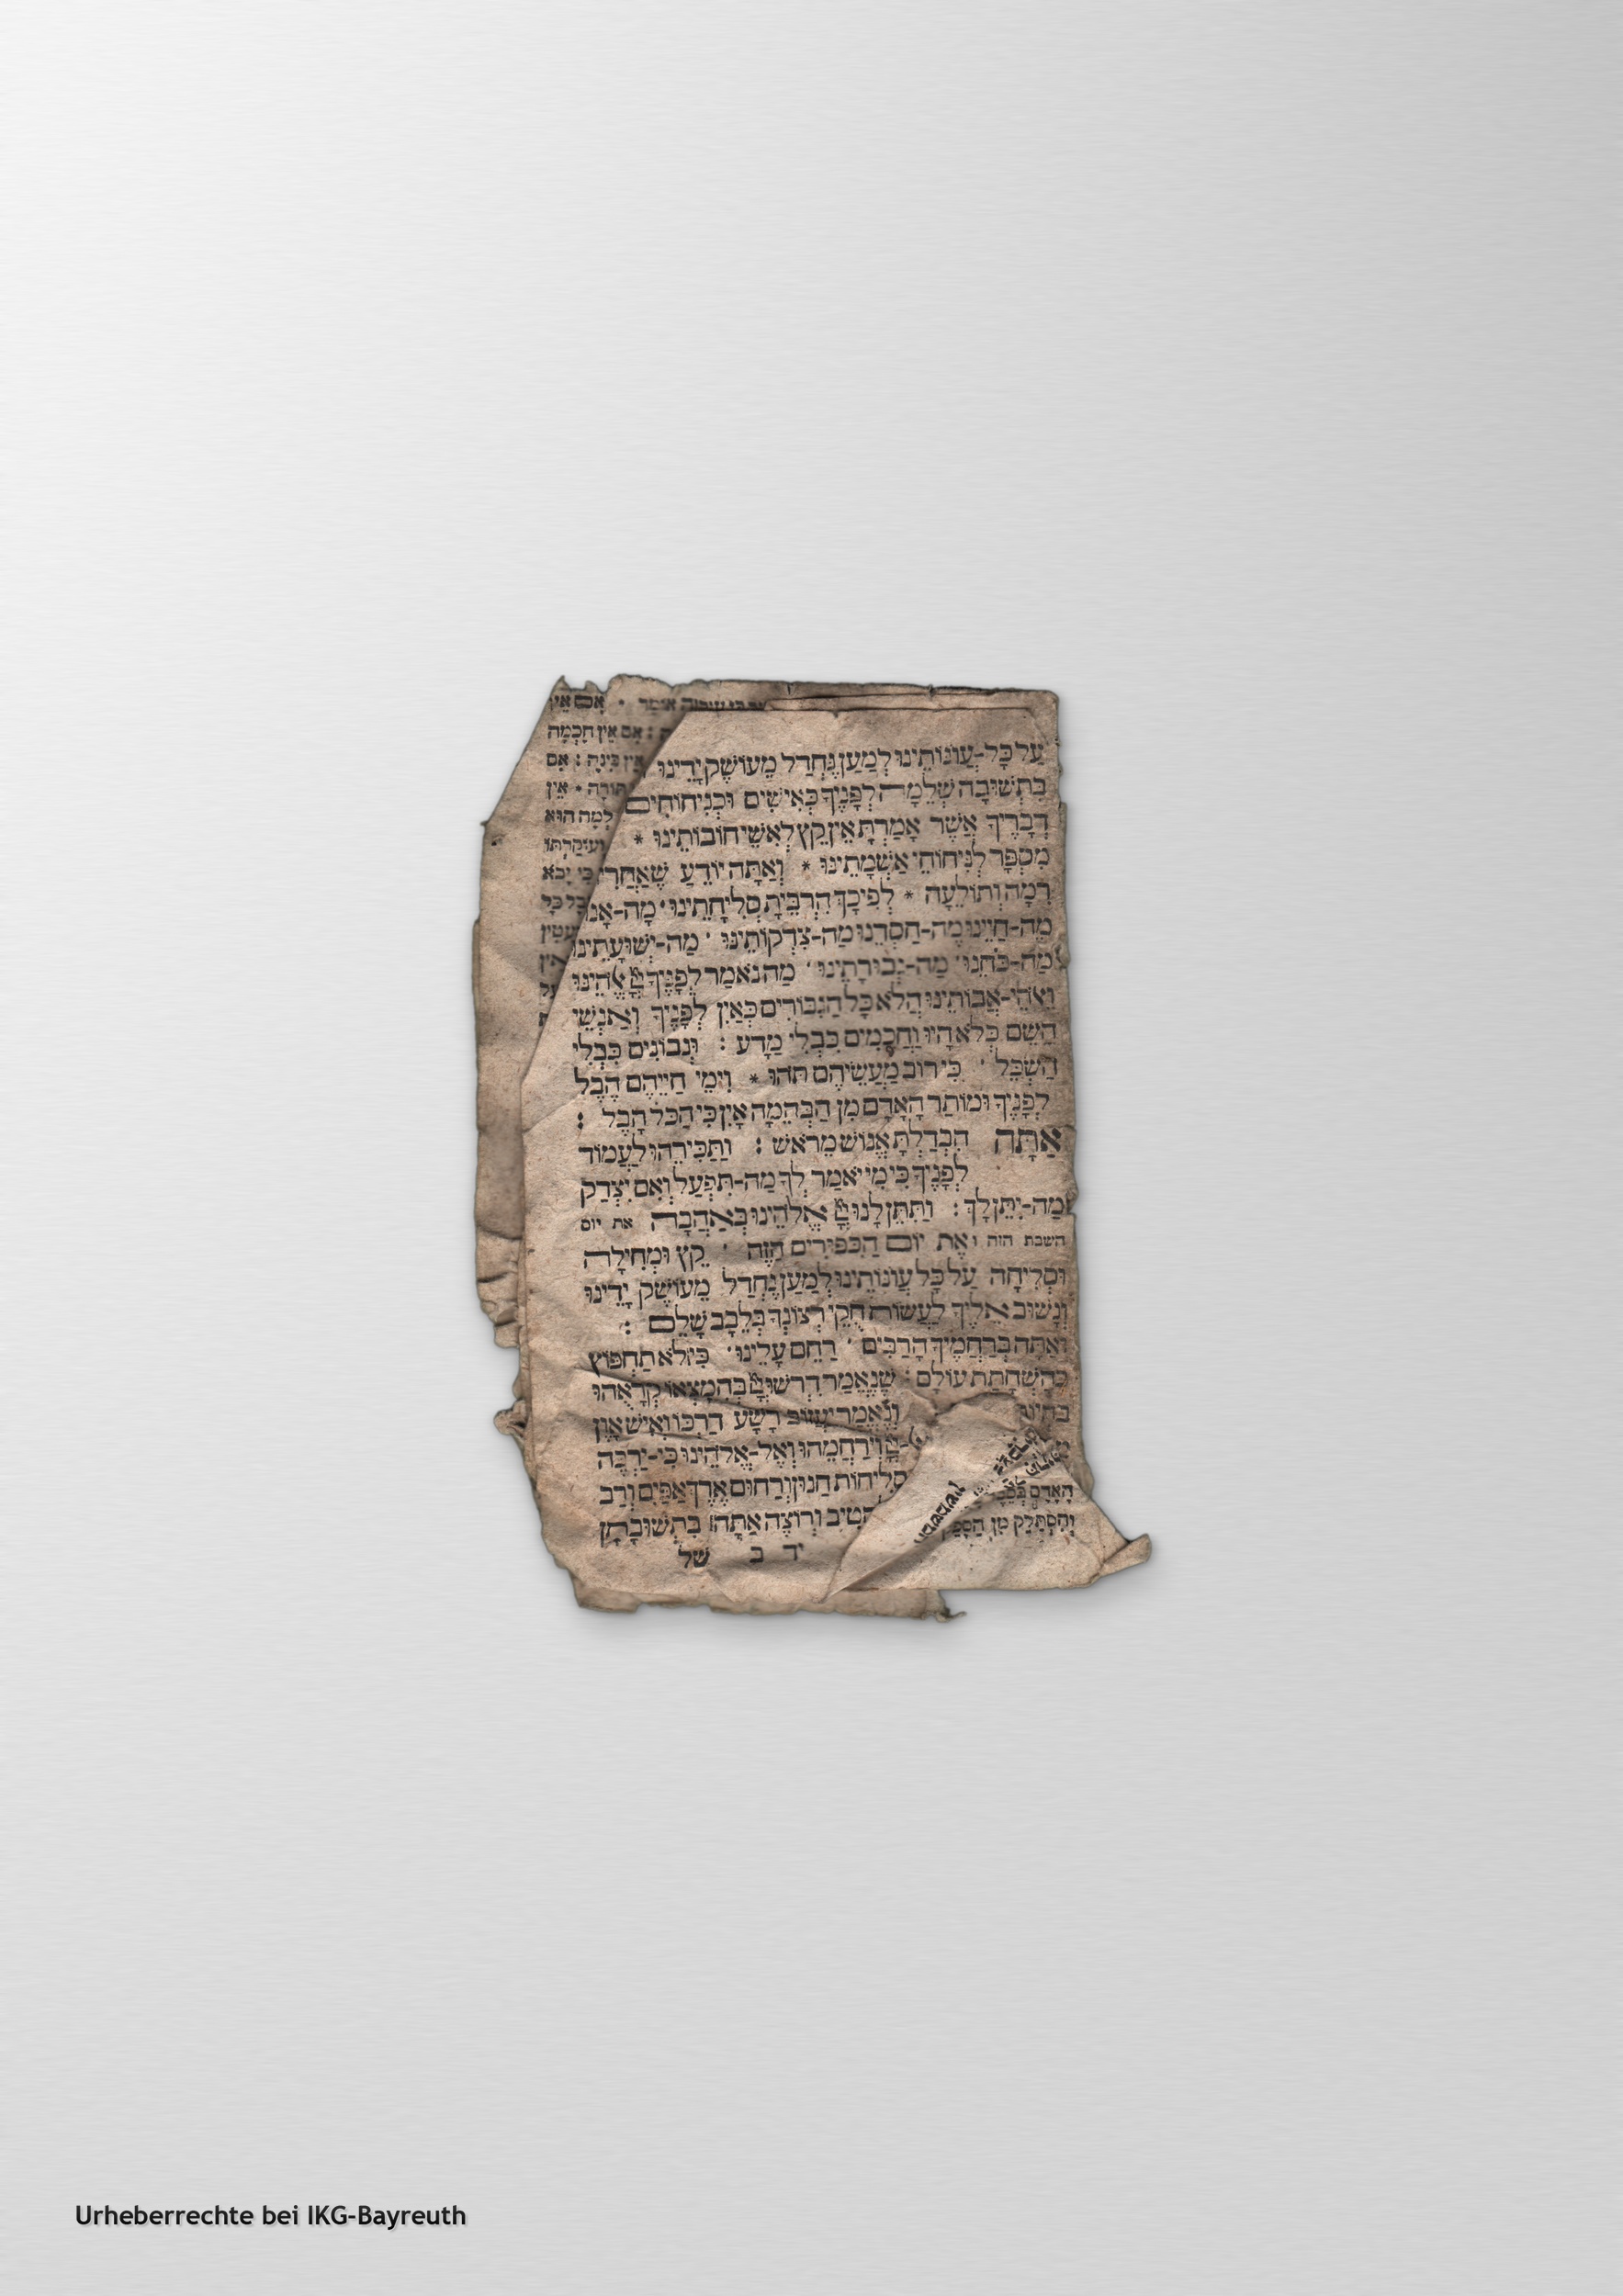 עַל כָּל-עֲוֹנוֹתֵינוּ לְמַעַן נֶּחְדַּל מֵעוֹשֶׁק יָדֵינוּ
בִּתְשׁוּבָה שְׁלֵמָה לְפָנֶיךָ כְּאִישִׁים וּכְנִיחוֹחִים
דְּבָרֶיךָ אֲשֶׁר אָמַרְתָּ אֵין קֵץ לְאִשֵּׁי חוֹבוֹתֵינוּ *
מִסְפָּר לְנִיחוֹחֵי אַשְׁמָתֵינוּ * וְאַתָּה יוֹדֵעַ שֶׁאַחֲרִ
רִמָּה וְתוֹלֵעָה * לְפִיכָךְ הִרְבֵּיתָ סְלִיחָתֵינוּ ׳ מָה-אָנוּ
מֶה-חַיֵּינוּ מֶה-חַסְדֵנוּ מַה-צִּדְקוֹתֵינוּ ׳ מַה-יְּשׁוּעָתֵינוּ
מַה-כֹּחֵנוּ ׳ מַה-גְּבוּרָתֵינוּ ׳ מַה נֹּאמַר לְפָנֶיךָ יְיָ אֱלֹהֵינוּ
וֵאלֹהֵי-אֲבוֹתֵינוּ הֲלֹא כָּל הַגִּבּוֹרִים כְּאַיִן לְפָנֶיךָ וְאַנְשֵׁי
הַשֵּׁם כְּלֹא הָיוּ וַחֲכָמִים כִּבְלִי מַדָּע : וּנְבוֹנִים כִּבְלִי
הַשְׂכֵּל ׳ כִּי רוֹב מַעֲשֵׂיהֶם תֹּהוּ * וִימֵי חַיֵּיהֶם הֶבֶל
לְפָנֶיךָ וּמוֹתַר הָאָדָם מִן הַבְּהֵמָה אָיִן כִּי הַכֹּל הָבֶל :
אַתָּה הִבְדַּלְתָּ אֱנוֹשׁ מֵרֹאשׁ : וַתַּכִּירֵהוּ לַעֲמוֹד
לְפָנֶיךָ כִּי מִי יֹאמַר לְךָ מַה-תִּפְעַל וְאִם יִצְדַּק
מַה-יִּתֶּן לָךְ : וַתִּתֶּן לָנוּ יְיָ אֱלֹהֵינוּ בְּאַהֲבָה את יום
השבת הזה ואֶת יוֹם הַכִּפּוּרִים הַזֶּה ׳ קֵץ וּמְחִילָה
וּסְלִיחָה עַל כָּל עֲוֹנוֹתֵינוּ לְמַעַן נֶחְדַּל מֵעוֹשֶׁק יָדֵינוּ
וְנָשׁוּב אֵלֶיךָ לַעֲשׂוֹת חֻקֵּי רְצוֹנְךָ בְּלֵבָב שָׁלֵם :
וְאַתָּה בְּרַחֲמֶיךָ הָרַבִּים ׳ רַחֵם עָלֵינוּ ׳ כִּי לֹא תַחְפּוֹץ
בְּהַשְׁחָתַת עוֹלָם : שֶׁנֶּאֱמַר דִּרְשׁוּ יְיָ בְּהִמָּצְאוֹ קְרָאֻהוּ
בִּהְיוֹ וְנֶאֱמַר יַעֲזוֹב רָשָׁע דַּרְכּוֹ וְאִישׁ אָוֶן
יְיָ וִירַחֲמֵהוּ וְאֶל-אֱלֹהֵינוּ כִּי-יַרְבֶּה
סְלִיחוֹת חַנּוּן וְרַחוּם אֶרֶךְ אַפַּיִם וְרַב
הֵטִיב וְרוֹצֶה אַתָּה בִּתְשׁוּבָתָן
יד ב של
אִם אֵין
אִם אֵין חָכְמָה
אֵין בִּינָה : אִם
תּוֹרָה * אֵין
לָמָּה הוּא
Urheberrechte bei IKG-Bayreuth